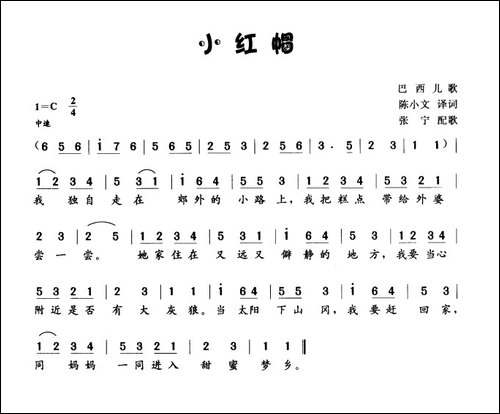 小红帽
巴西儿歌
1=C 2/4
陈小文 译词
中速
张宁 配歌
(6 5 6 | i 7 6 | 5 6 5 | 2 5 2 | 5 5 6 | 3 · 5 | 2 3 | 1 1) |
1 2 3 4 | 5 3 1 | i 6 4 | 5 5 3 | 1 2 3 4 | 5 3 2 1 |
我 独自 走在 郊外的 小路上,我把糕点 带给外婆
2 3 | 2 5 | 1 2 3 4 | 5 3 2 1 | i 6 4 | 5 3 | 1 2 3 4 |
尝一尝。 她家住在 又远又 僻静的 地方,我要当心
5 3 2 1 | 2 3 | 1 1 | i 6 4 | 5 1 | i 6 4 | 5 3 |
附近是否 有大灰狼。当太阳 下山冈,我要赶 回家,
1 2 3 4 | 5 3 2 1 | 2 3 | 1 1 ‖
同妈妈 一同进入 甜蜜梦乡。